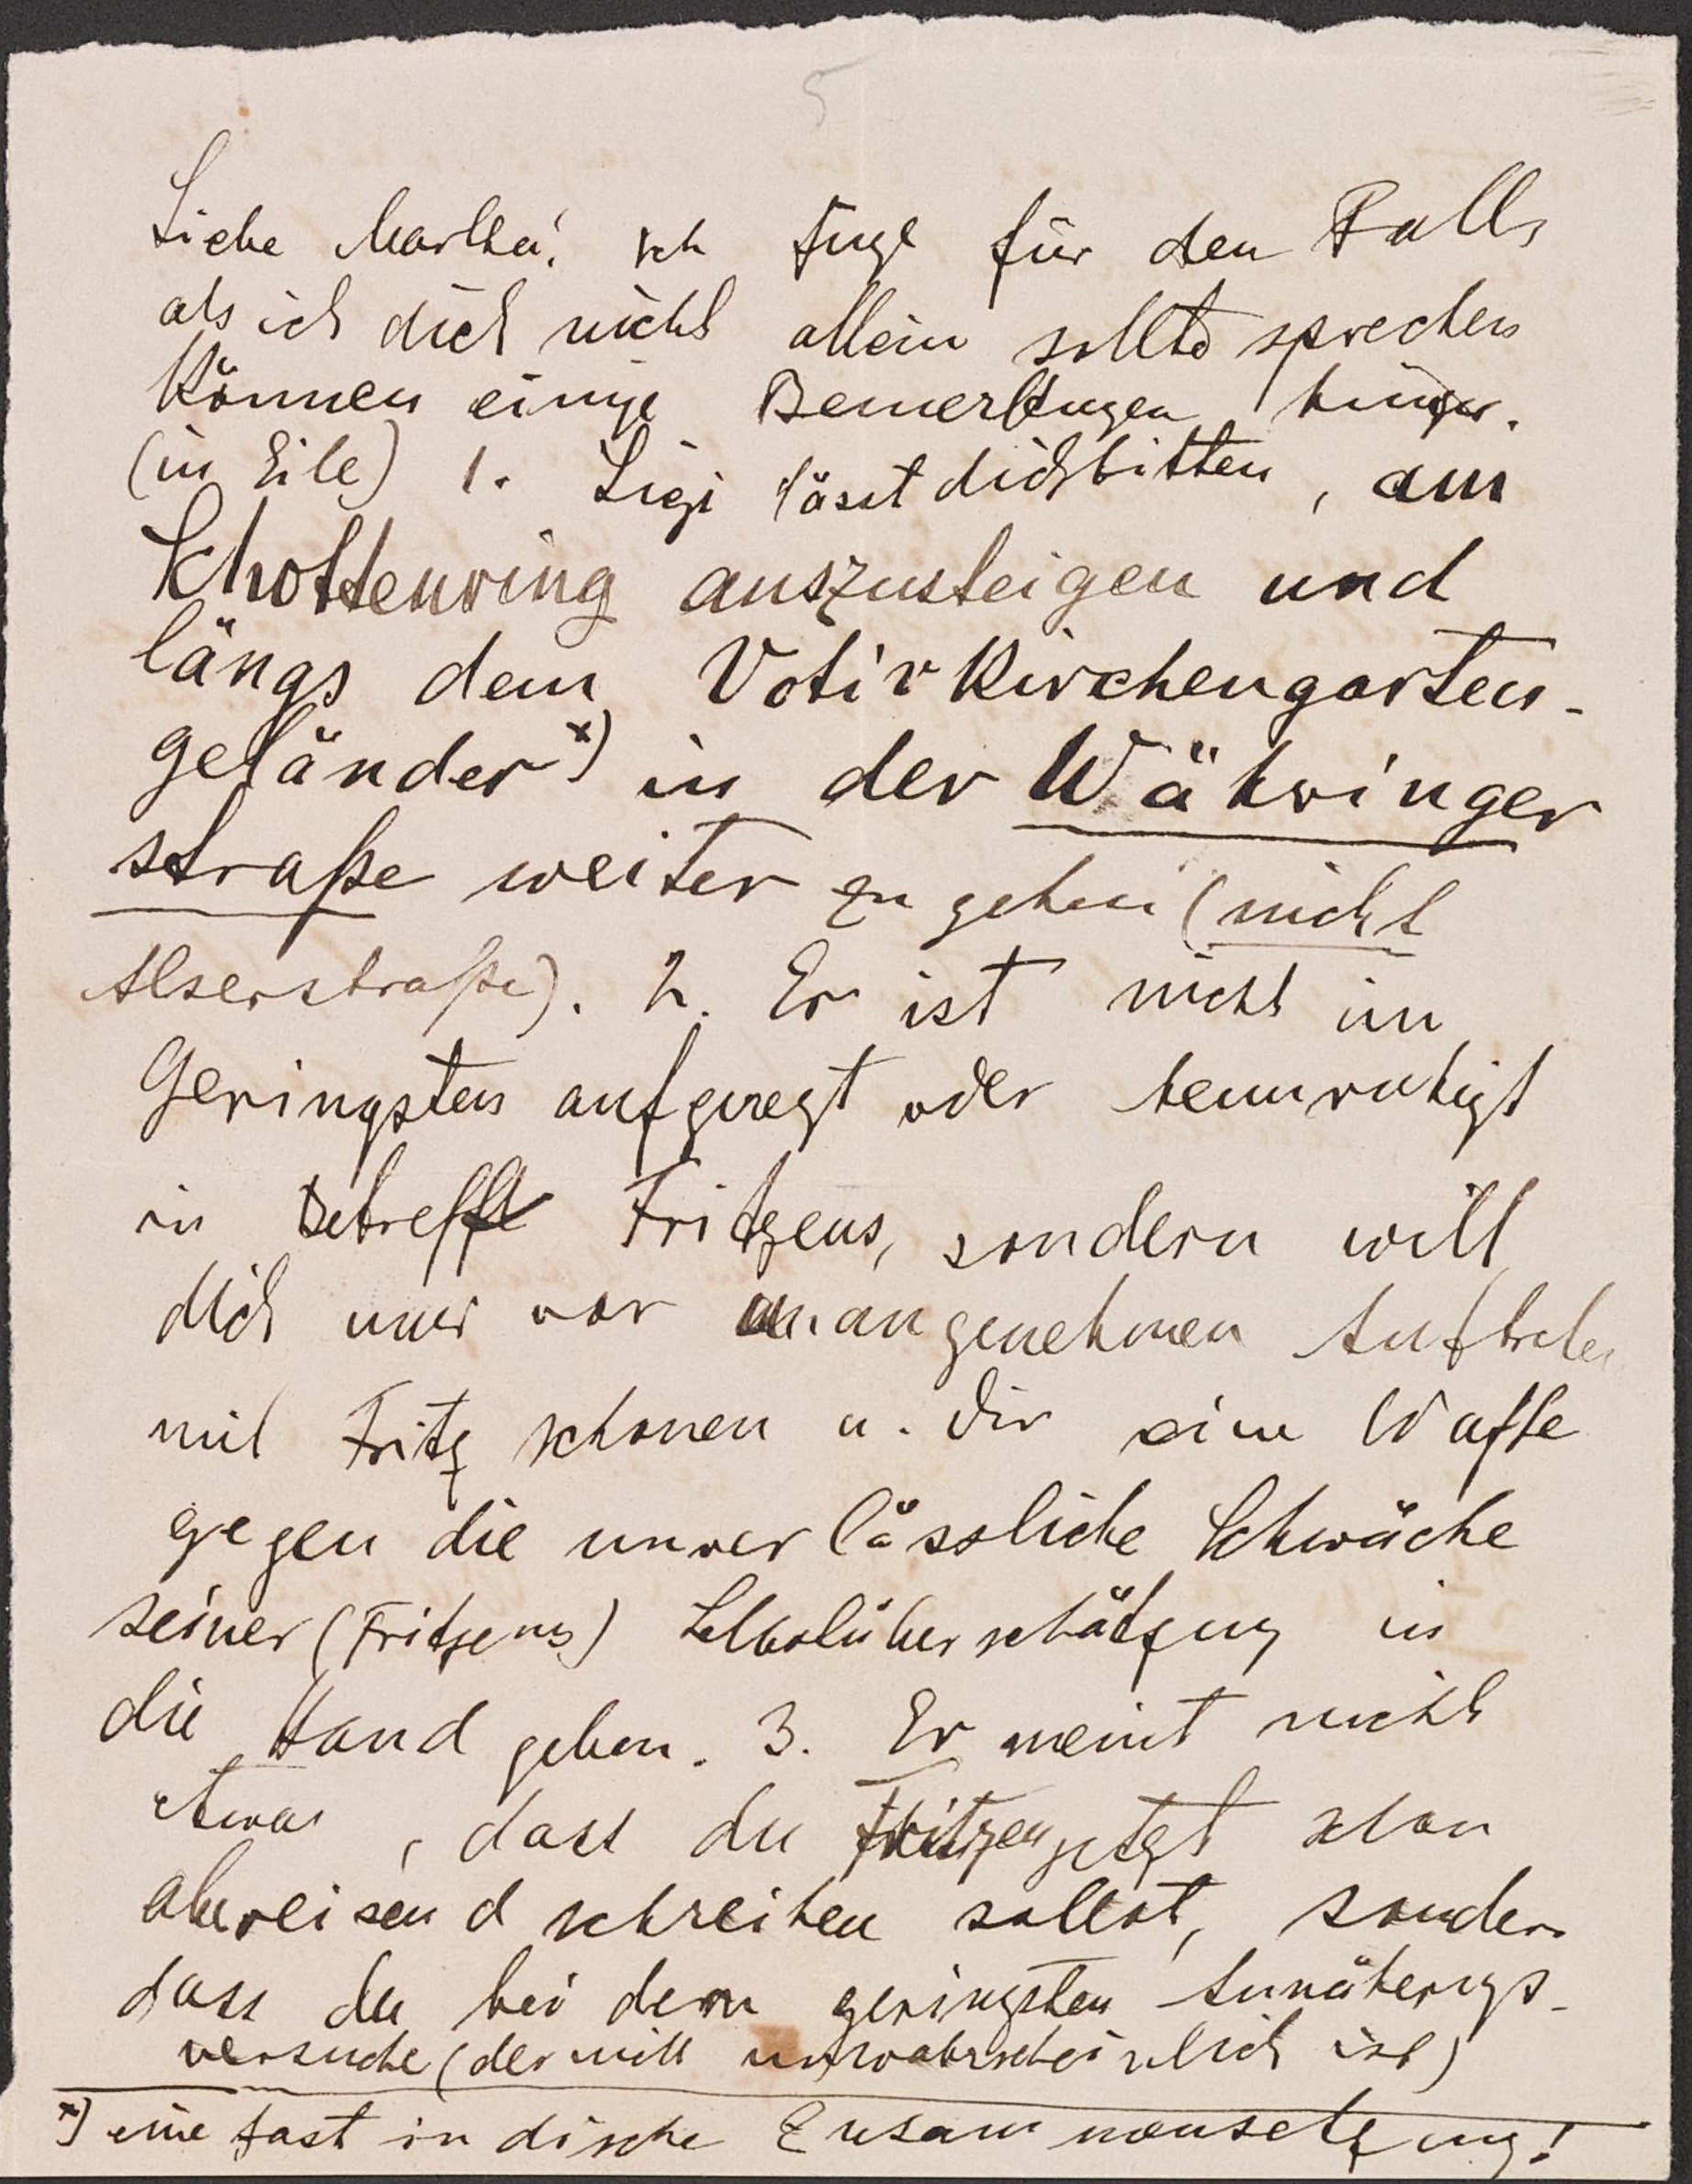 5
Liebe Martha! Ich füge für den Fall,
als ich dich nicht allein sollte sprechen
können einige Bemerkungen hinzu.
(in Eile) 1. Sigi lässt dich bitten, am
Schottenring auszusteigen und
längs dem Votivkirchengarten-
geländer*) in der Währinger
straße weiter zu gehen (nicht
Alserstraße). 2. Er ist nicht im
Geringsten aufgeregt oder beunruhigt
in Betreff Fritzens, sondern will
dich nur vor unangenehmen Auftreten
mit Fritz schonen u. dir eine Waffe
gegen die unverlässliche Schwäche
seiner (Fritzens) Selbstüberschätzung in
die Hand geben. 3. Er meint nicht
etwa, dass du Fritzen jetzt schon
abweisend schreiben sollst, sondern
dass du bei dem geringsten Annäherungs-
versuche (der nicht unwahrscheinlich ist)
*) eine fast indische Zusammensetzung!